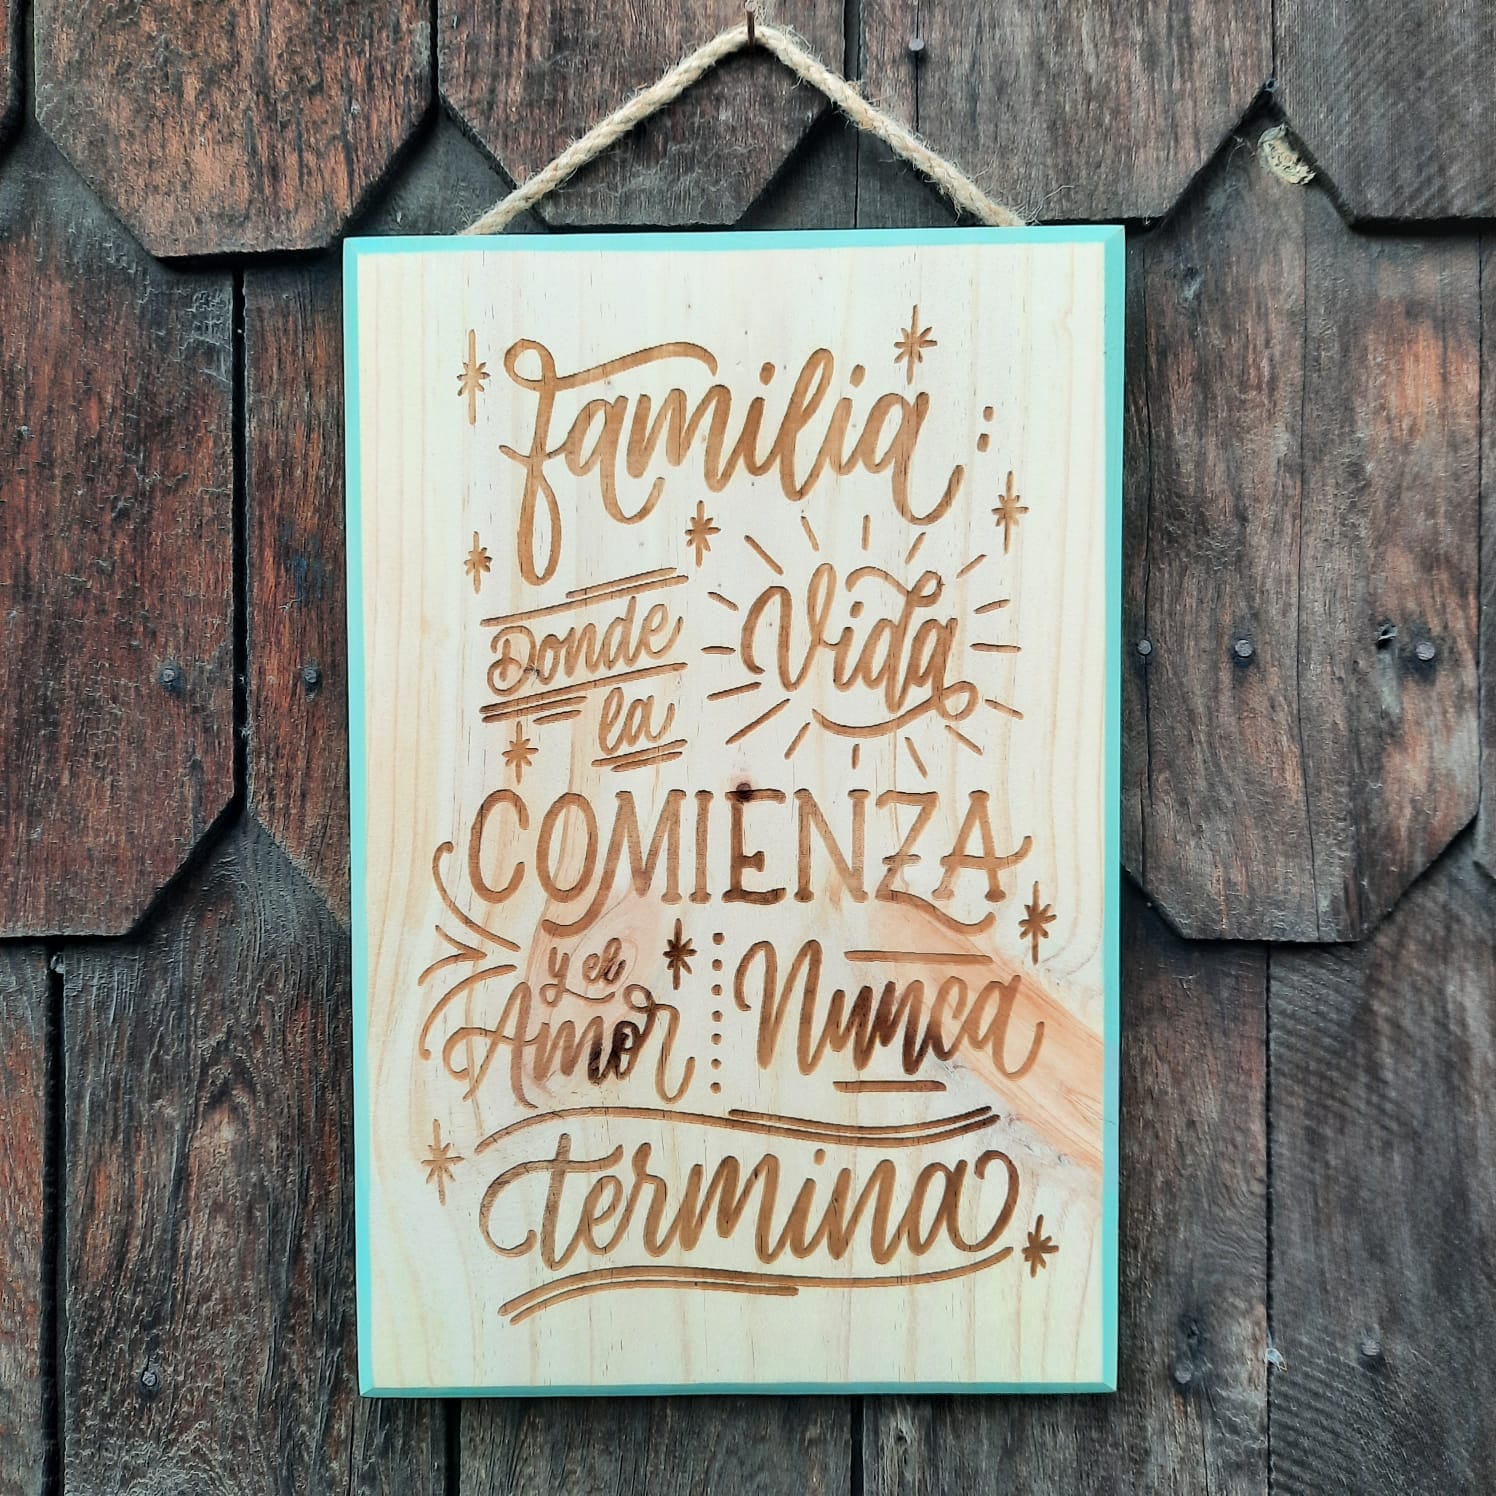 Familia:
Donde la Vida
COMIENZA
y el Amor Nunca
termina